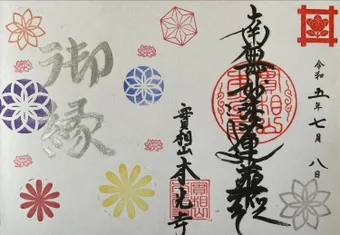 令和五年七月八日
南無妙法蓮華経
實相山
本光寺
御縁